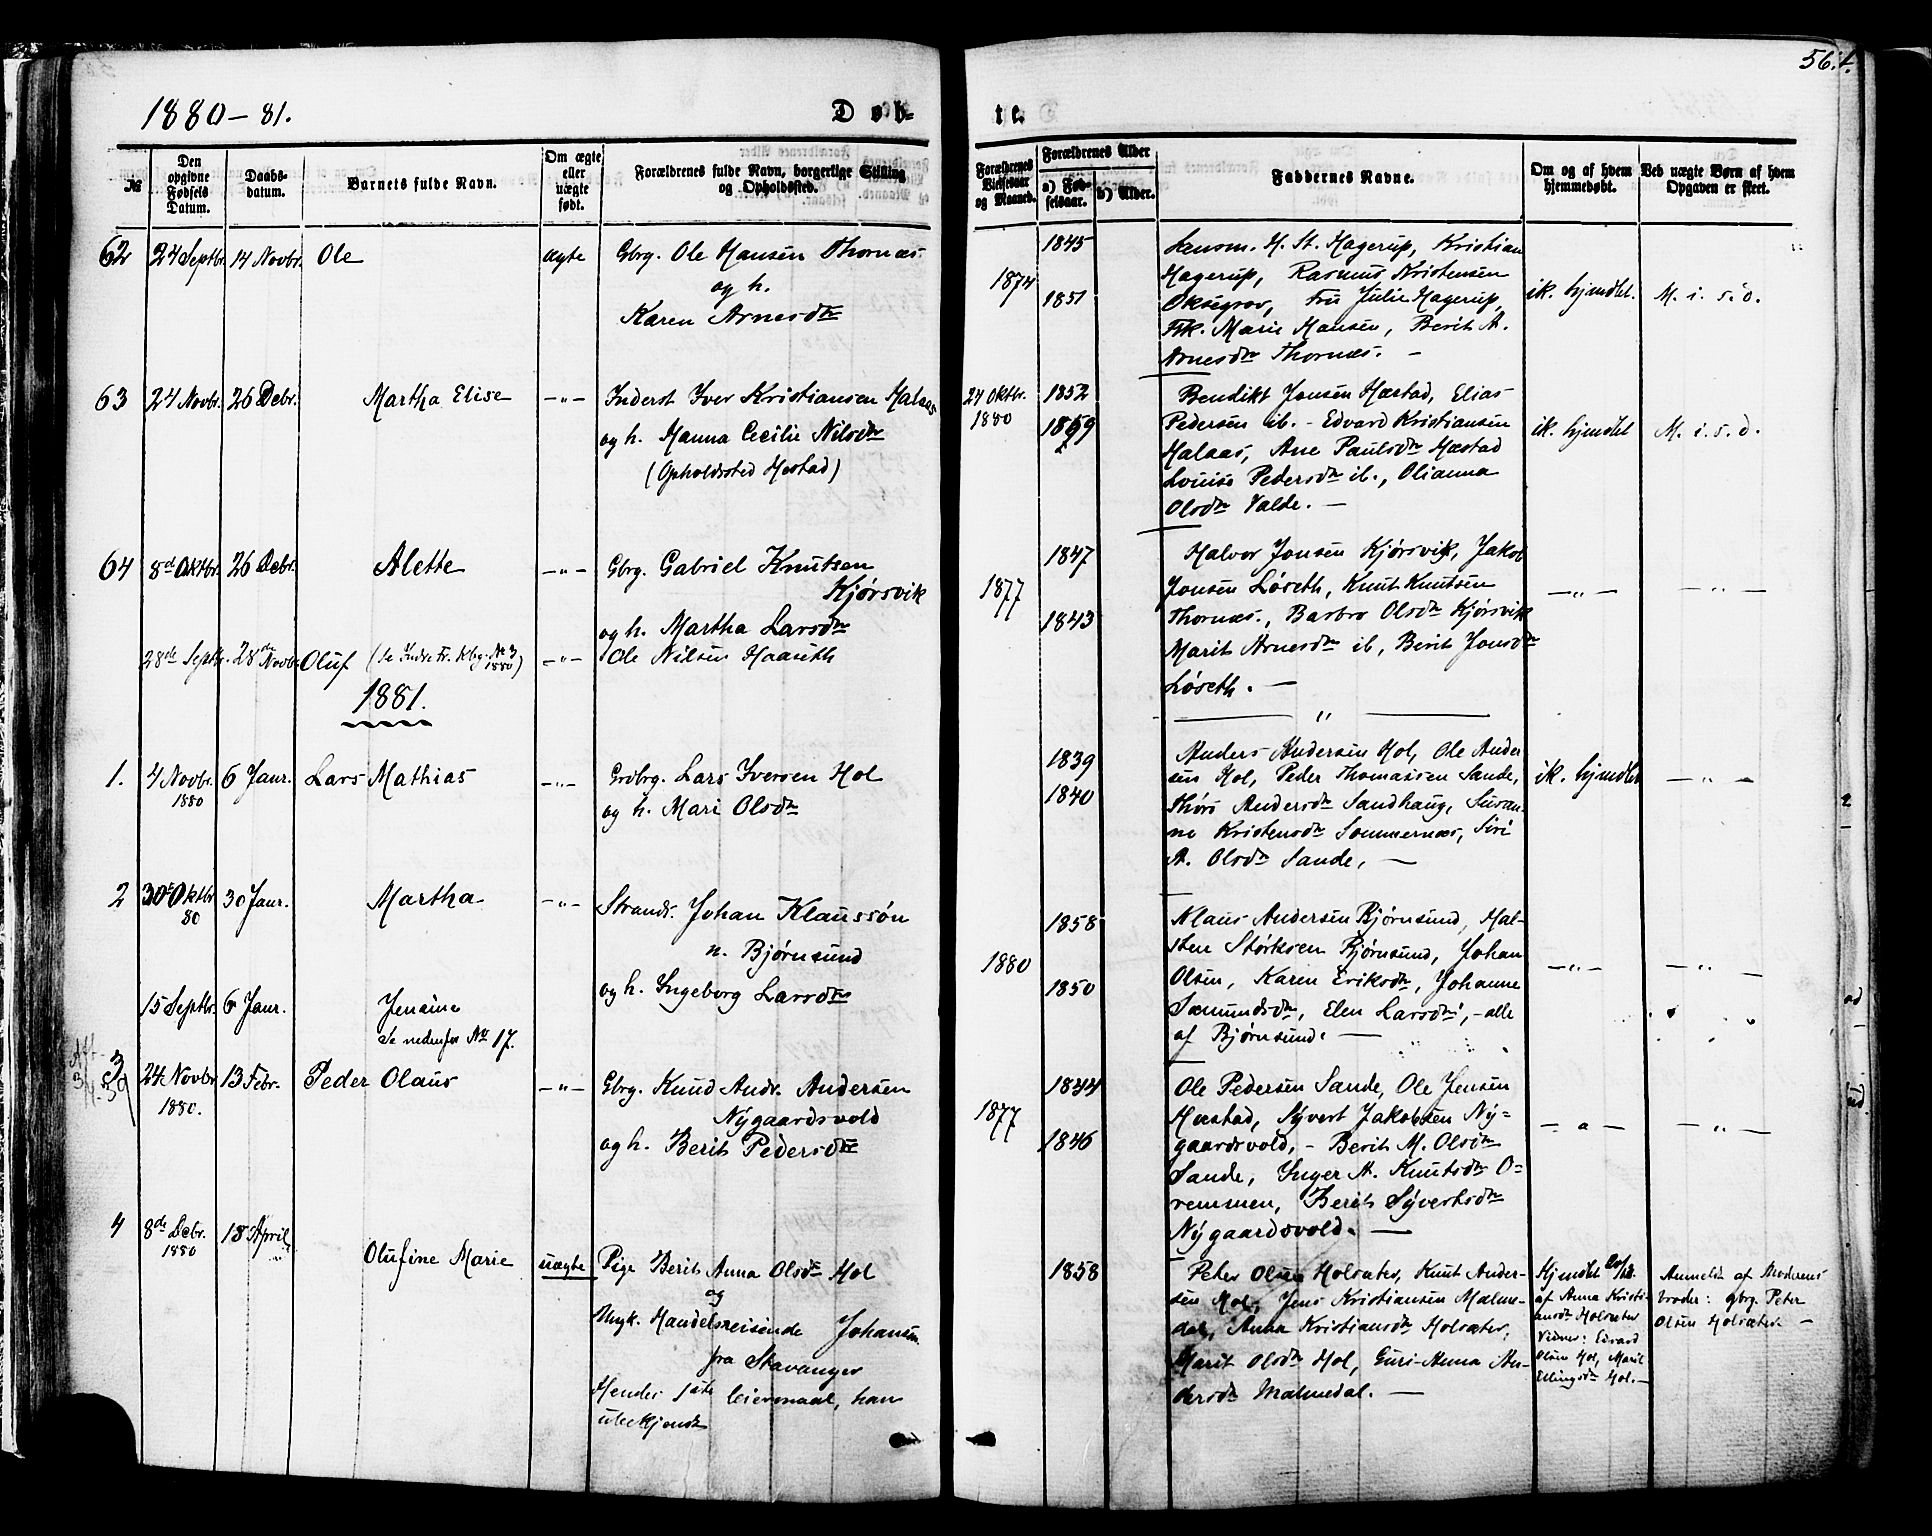 56.
1880–81.
Døb-
te.
№
Den opgivne Fødsels Datum.
Daabs-datum.
Barnets fulde Navn.
Om ægte eller uægte født.
Forældrenes fulde Navn, borgerlige Stilling og Opholdssted.
Forældrenes Vielsesaar og Maaned.
Forældrenes Alder
a) Fødselsaar.
b) Alder.
Faddernes Navne.
Om og af hvem hjemmedøbt.
Ved uægte Børn af hvem Opgaven er skeet.
62 24 Septbr. 14 Novbr. Ole ægte Gbrg. Ole Hansen Thornæs
og h.
Karen Arnesdtr
1874 1845
1851
Lensm. H. St. Hagerup, Kristian
Hagerup, Rasmus Kristensen
Oksegrov, Fru Julie Hagerup,
Frk. Marie Hansen, Berit A.
Arnesdtr Thornæs. –
ik. hjmdbt. M. i. s. o.
63 24 Novbr. 26 Debr. Martha Elise –"– Inderst Iver Kristiansen Malaas
og h. Hanna Cecilie Nilsdtr
(Opholdssted Hæstad)
24 Oktbr.
1880
1852
1859
Bendikt Jonsen Hæstad, Elias
Pedersen ib. – Edvard Kristiansen
Malaas, Ane Paulsdtr Hæstad
Louise Pedersdtr ib., Olianna
Olsdtr Valde. –
ik. hjmdbt M. i. s. o.
64 8de Oktbr. 26 Debr. Alette –"– Gbrg. Gabriel Knutsen
Kjørsvik
og h. Martha Larsdtr
1877 1847
1843
Halvor Jonsen Kjørsvik, Jakob
Jonsen Løseth, Knut Knutsen
Thornæs., Barbro Olsdtr Kjørsvik
Marit Arnesdtr ib, Berit Jonsdtr
Løseth. –
–"– –"–
28de Septbr. 28de Novbr. Oluf (se Indre Fr. Kbg. № 3 1880) –"– Ole Nilsen Haaseth
1881.
–"–
1. 4 Novbr. 1880 6 Janr. Lars Mathias –"– Grdbrg. Lars Iversen Hol
og h. Mari Olsdtr
1839
1840
Anders Andersen Hol, Ole Ander-
sen Hol, Peder Thomassen Sande,
Thore Andersdtr Sandhaug, Susan-
ne Kristensdtr Sommernæs, Siri
A. Olsdtr Sande, –
ik. hjmdbt –"–
2 30 Oktbr 80 30 Janr. Martha –"– Strands. Johan Klaussøn
n. Bjørnsund
og h. Ingeborg Larsdtr
1880 1858
1850
Klaus Andersen Bjørnsund, Hal-
sten Størksen Bjørnsund, Johan
Olsen, Karen Eriksdtr, Johanne
Sæmundsdtr, Elen Larsdtr, – alle
af Bjørnsund. –
–"– –"–
15 Septbr. 6 Janr. Jensine
Se nedenfor № 17.
3 24 Novbr 1880. 13 Febr. Peder Olaus –"– Gbrg. Knud Andr. Andersen
Nygaardsvold
og h. Berit Pedersdtr
1877 1844
1846
Ole Pedersen Sande, Ole Jensen
Hæstad, Syvert Jakobsen Ny-
gaardsvold, – Berit M. Olsdtr
Sande, Inger A. Knutsdtr O-
remmen, Berit Syvertsdtr
Nygaardsvold. –
–"– –"–
4 8de Debr. 1880 18 April Olufine Marie uægte Pige Berit Anna Olsdtr Hol
og
Ungk. Handelsreisende Johansen
fra Stavanger
Hendes 1ste leiermaal, han
ubekjendt
1858
Peter Olsen Holsæter, Knut Ander-
sen Hol, Jens Kristiansen Malme-
dal, Anna Kristiansdtr Holsæter,
Marit Olsdtr Hol, Guri-Anna An-
dersdtr Malmedal. –
Hjemdbt 20/12.
af Anna Kristi-
ansdtr Holsæter
Vidner: Edvard
Olsen Hol, Marit
Ellingsdtr Hol. –
Anmeldt af Moderens
broder: gbrg. Peter
Olsen Holsæter –